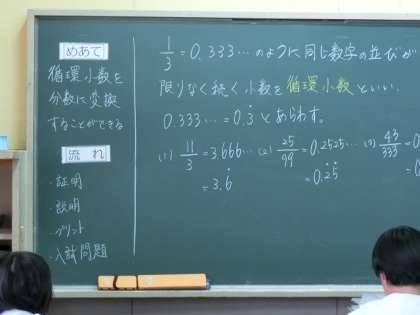 めあて
循環小数を
分数に変換
することができる
流れ
・証明
・説明
・プリント
・入試問題
1/3 = 0.333… のように同じ数字の並びが
限りなく続く小数を循環小数といい、
0.333… = 0.3̇ とあらわす。
(1) 11/3 = 3.666… (2) 25/99 = 0.2525… (3) 43/333 = 0
= 3.6̇ = 0.2̇5̇ = 0